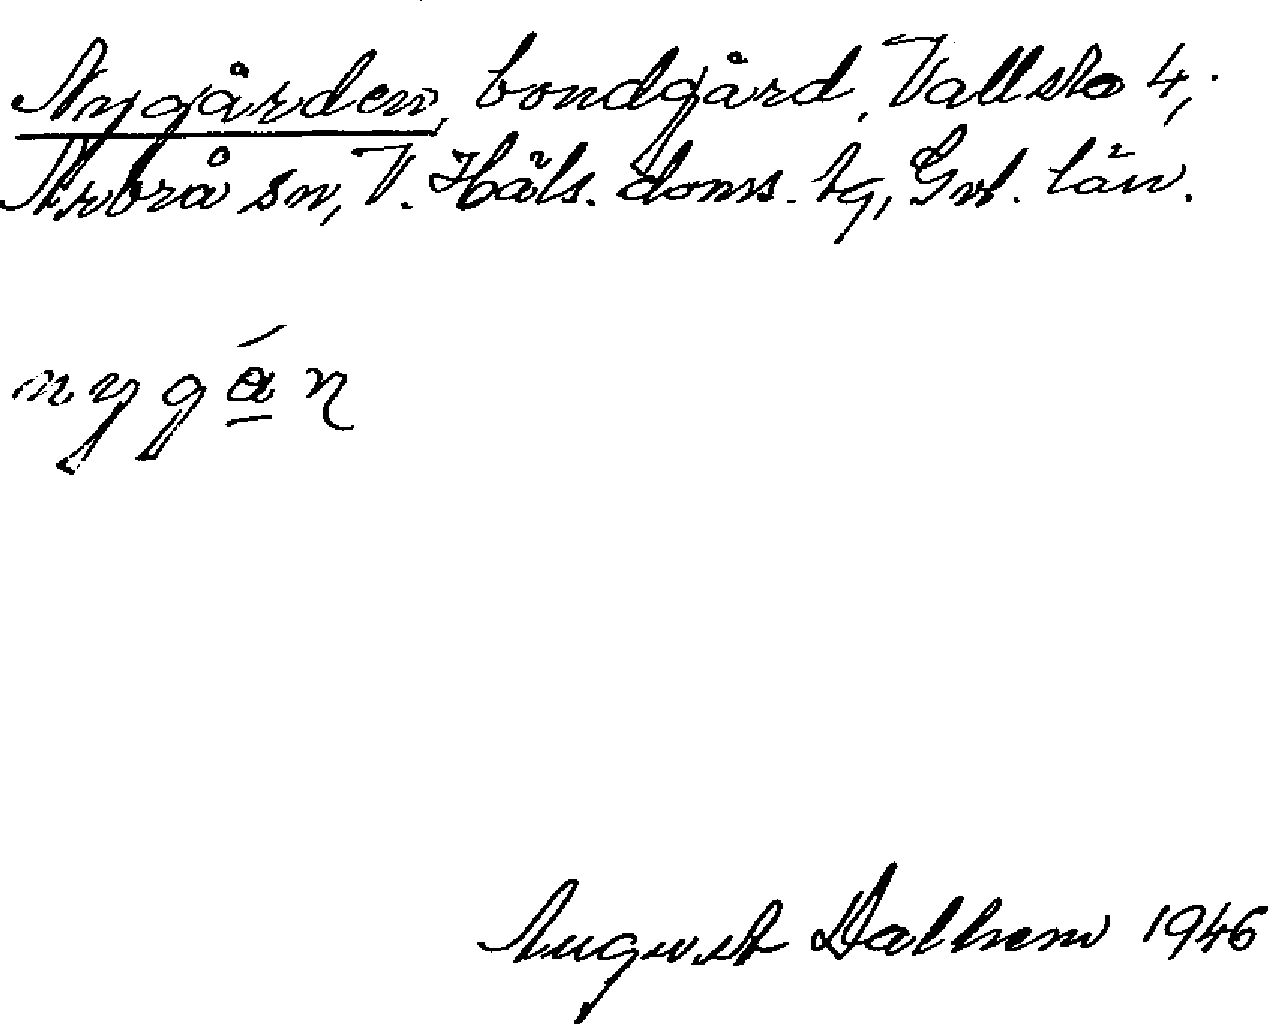 Nygården, bondgård, Vallsta 4,
Arbrå sn, V. Häls. doms. tg, Gvl. län.
nygá̱n
August Dalhem 1946